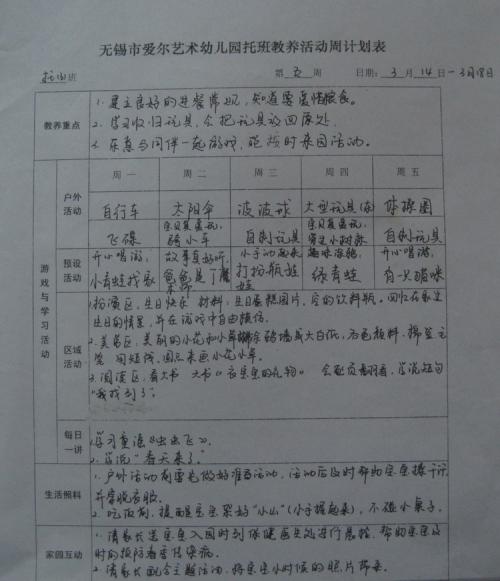 无锡市爱尔艺术幼儿园托班教养活动周计划表
托 班 第 五 周 日期: 3 月 14 日-3月18日
教养重点
1. 建立良好的进餐常规,知道要爱惜粮食。
2. 学习收归玩具,会把玩具放回原处。
3. 乐意与同伴一起游戏,能按时来园活动。
游戏与学习活动
周一 周二 周三 周四 周五
户外活动
自行车 太阳伞 波波球 大型玩具 体操圈
飞碟 骑小车 自制玩具 自制玩具
预设活动
开心唱游: 故事真好听: 小手动起来 开心唱游:
小青蛙找家 爸爸 打扮瓶娃娃 绿青蛙 有一只猫咪
区域活动
生日快乐 材料:生日蛋糕图片,空的饮料瓶。回忆在家过
生日的情景,并在游戏中自由模仿。
2. 美工区,美丽的小花和小草 大白纸,各色颜料,棉签
用短线,圆点来画小花小草。
3. 阅读区,看大书 大书《 的礼物》 会配页翻看,学说短句
“我找到了”。
每日一讲
1. 学习童谣《虫虫飞》。
2. 学说“春天来了”。
生活照料
1. 户外活动前要先做好准备活动,活动后及时帮助宝宝擦干汗,
并穿脱衣服。
2. 吃饭前,提醒宝宝架好“小山”(小手握起来),不碰小桌子。
家园互动
1. 请家长送宝宝入园时到保健医生处进行晨检,帮助宝宝及
时的预防春季传染病。
2. 请家长配合主题活动,将宝宝小时候的照片带来。